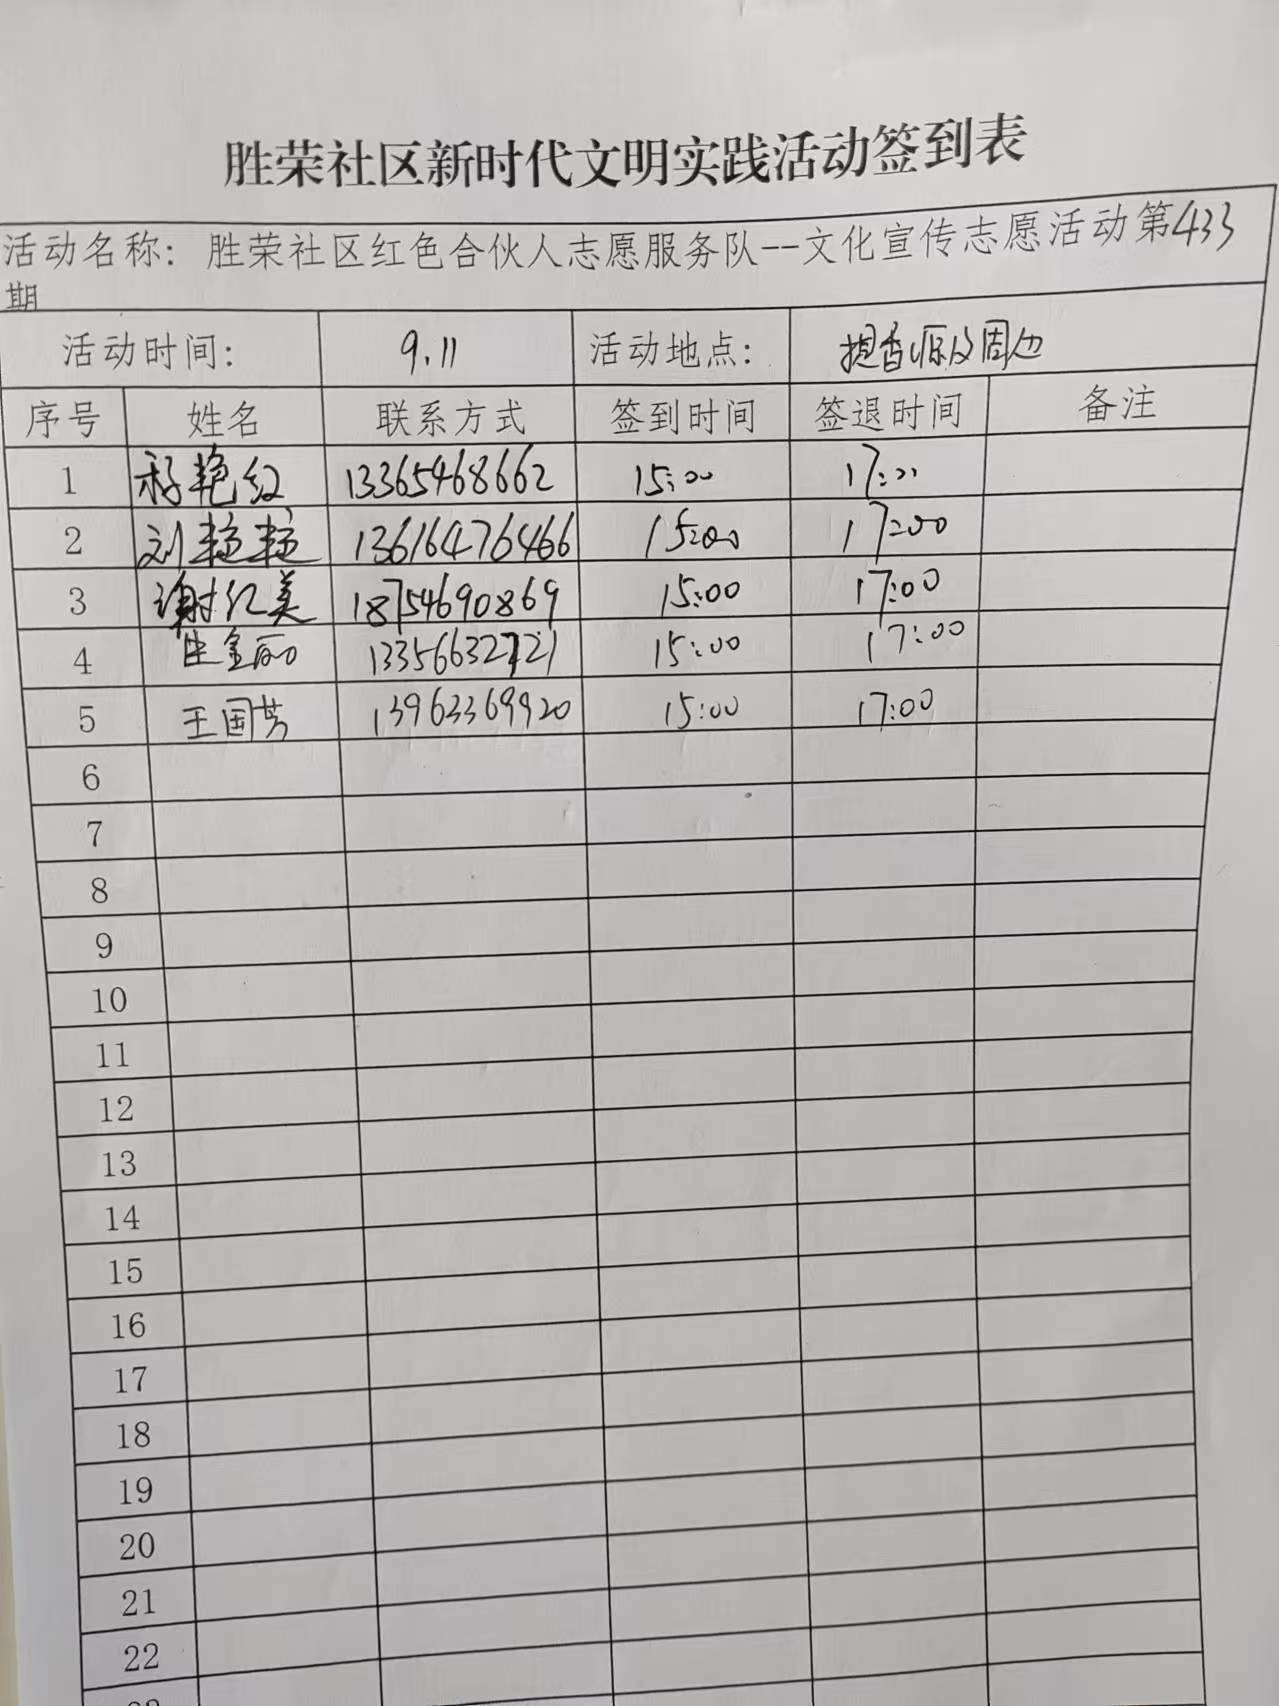 胜荣社区新时代文明实践活动签到表
活动名称：胜荣社区红色合伙人志愿服务队--文化宣传志愿活动第433
期
活动时间： 9.11 活动地点： 提香源及周边
序号 姓名 联系方式 签到时间 签退时间 备注
1 艳红 13365468662 15:00 17:00
2 刘艳艳 13616476466 15:00 17:00
3 谢红美 18754690869 15:00 17:00
4 金丽 15:00 17:00
5 王国芳 13963369920 15:00 17:00
6
7
8
9
10
11
12
13
14
15
16
17
18
19
20
21
22